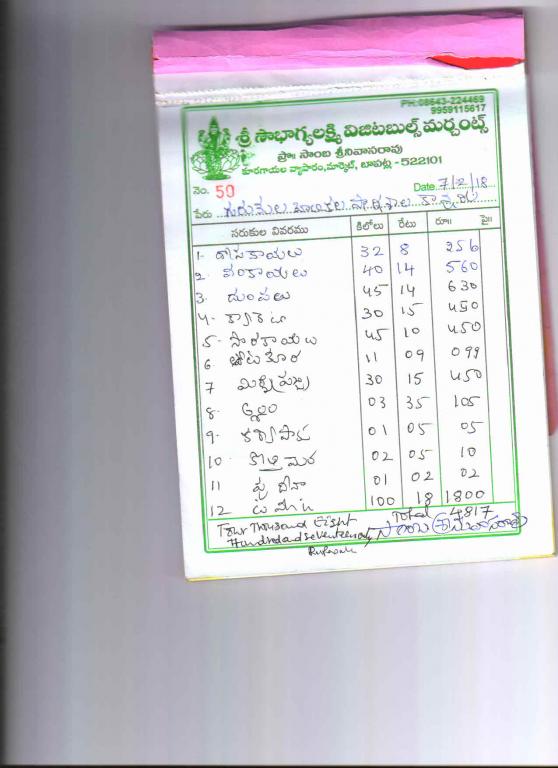 PH:08643-224469
9959115617
శ్రీ సౌభాగ్యలక్ష్మి విజిటబుల్స్ మర్చంట్స్
ప్రొః సాంబ శ్రీనివాసరావు
కూరగాయల వ్యాపారం, మార్కెట్, బాపట్ల - 522101
నెం. 50 Date 7/2/18
పేరు గురుకుల బాలికల పాఠశాల
సరుకుల వివరము కిలోలు రేటు రూ॥ పై॥
1- దోసకాయలు 32 8 256
2. వంకాయలు 40 14 560
3. దుంపలు 45 14 630
4- క్యారెట్ 30 15 450
5- సొరకాయలు 45 10 450
6 తోటకూర 11 09 099
7 మిర్చి 30 15 450
8- అల్లం 03 35 105
9- కర్వేపాకు 01 05 05
10- కొత్తిమెర 02 05 10
11 పుదీనా 01 02 02
12 టమాట 100 18 1800
Total 4817
Four Thousand Eight
Hundred and seventeen only
Rupees